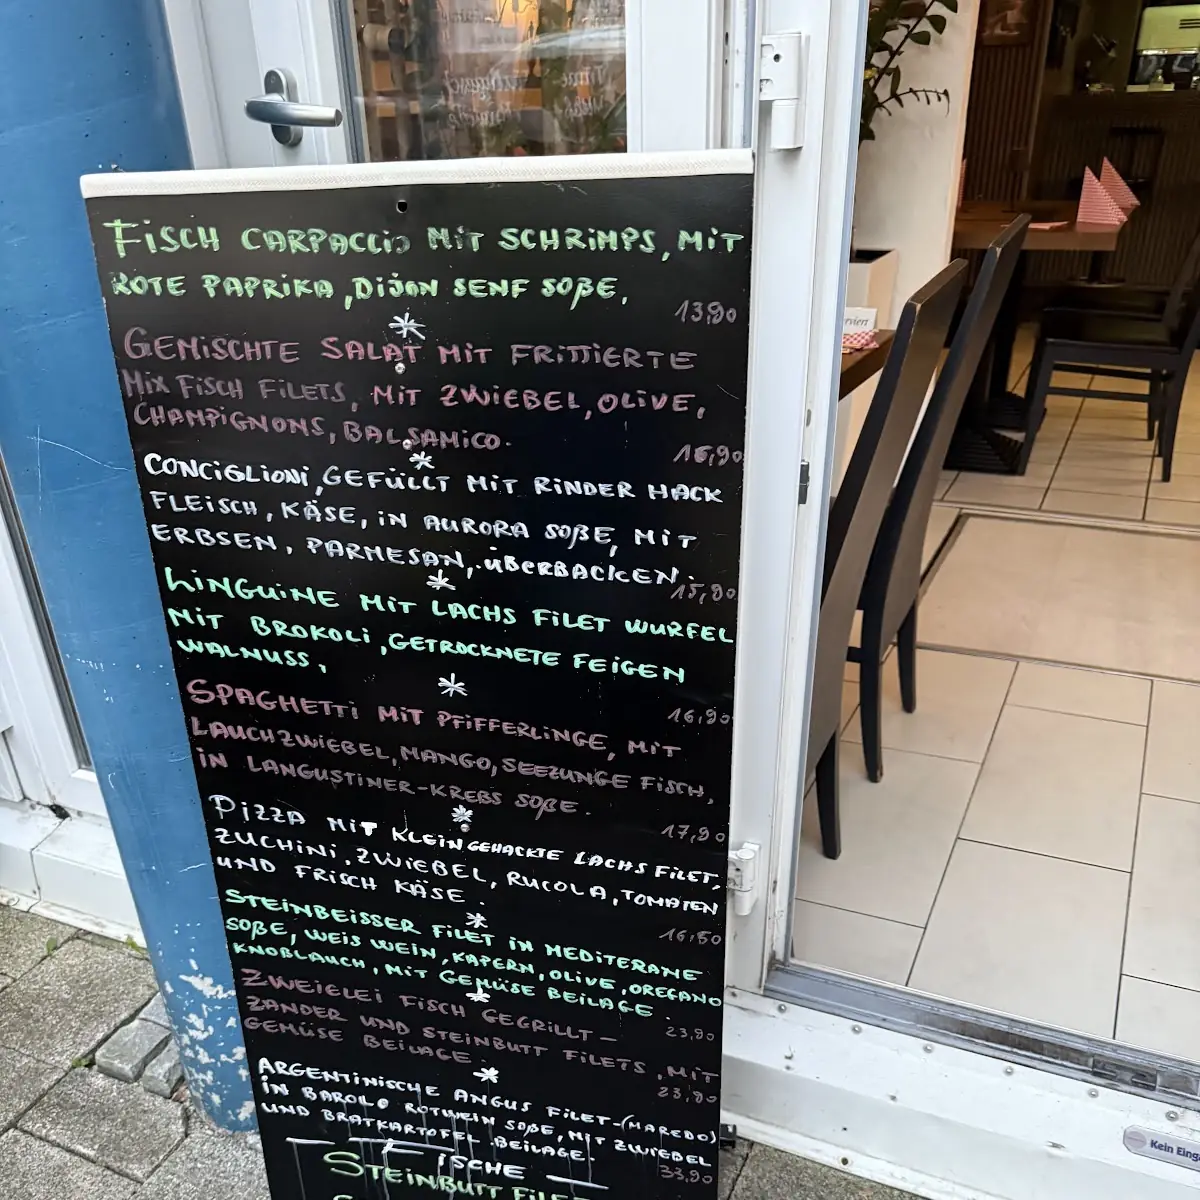 FISCH CARPACCIO MIT SCHRIMPS, MIT
ROTE PAPRIKA, DIJON SENF SOßE,
13,90
GEMISCHTE SALAT MIT FRITTIERTE
MIX FISCH FILETS, MIT ZWIEBEL, OLIVE,
CHAMPIGNONS, BALSAMICO.
16,90
CONCIGLIONI, GEFÜLLT MIT RINDER HACK
FLEISCH, KÄSE, IN AURORA SOßE, MIT
ERBSEN, PARMESAN, ÜBERBACKEN.
15,90
LINGUINE MIT LACHS FILET WURFEL
MIT BROKOLI, GETROCKNETE FEIGEN
WALNUSS,
16,90
SPAGHETTI MIT PFIFFERLINGE, MIT
LAUCHZWIEBEL, MANGO, SEEZUNGE FISCH,
IN LANGUSTINER-KREBS SOßE.
17,90
PIZZA MIT KLEINGEHACKTE LACHS FILET,
ZUCHINI, ZWIEBEL, RUCOLA, TOMATEN
UND FRISCH KÄSE.
16,50
STEINBEISSER FILET IN MEDITERANE
SOßE, WEIS WEIN, KAPERN, OLIVE, OREGANO
KNOBLAUCH, MIT GEMÜSE BEILAGE.
23,90
ZWEIELEI FISCH GEGRILLT-
ZANDER UND STEINBUTT FILETS, MIT
GEMÜSE BEILAGE.
23,90
ARGENTINISCHE ANGUS FILET-(MAREDO)
IN BAROLO ROTWEIN SOßE, MIT ZWIEBEL
UND BRATKARTOFEL BEILAGE.
33,90
FISCHE
STEINBUTT FILET
Kein Eing